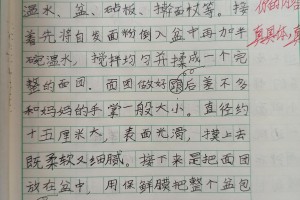 温水、盆、砧板、擀面杖等。接
着先将自发面粉倒入盆中再加半
碗温水，搅拌均匀并揉成一个完
整的面团。面团做好后差不多
和妈妈的手掌一般大小。直径约
十五厘米大，表面光滑，摸上去
既柔软又细腻。接下来是把面团
放在盆中，用保鲜膜把整个盆包
真具体，真